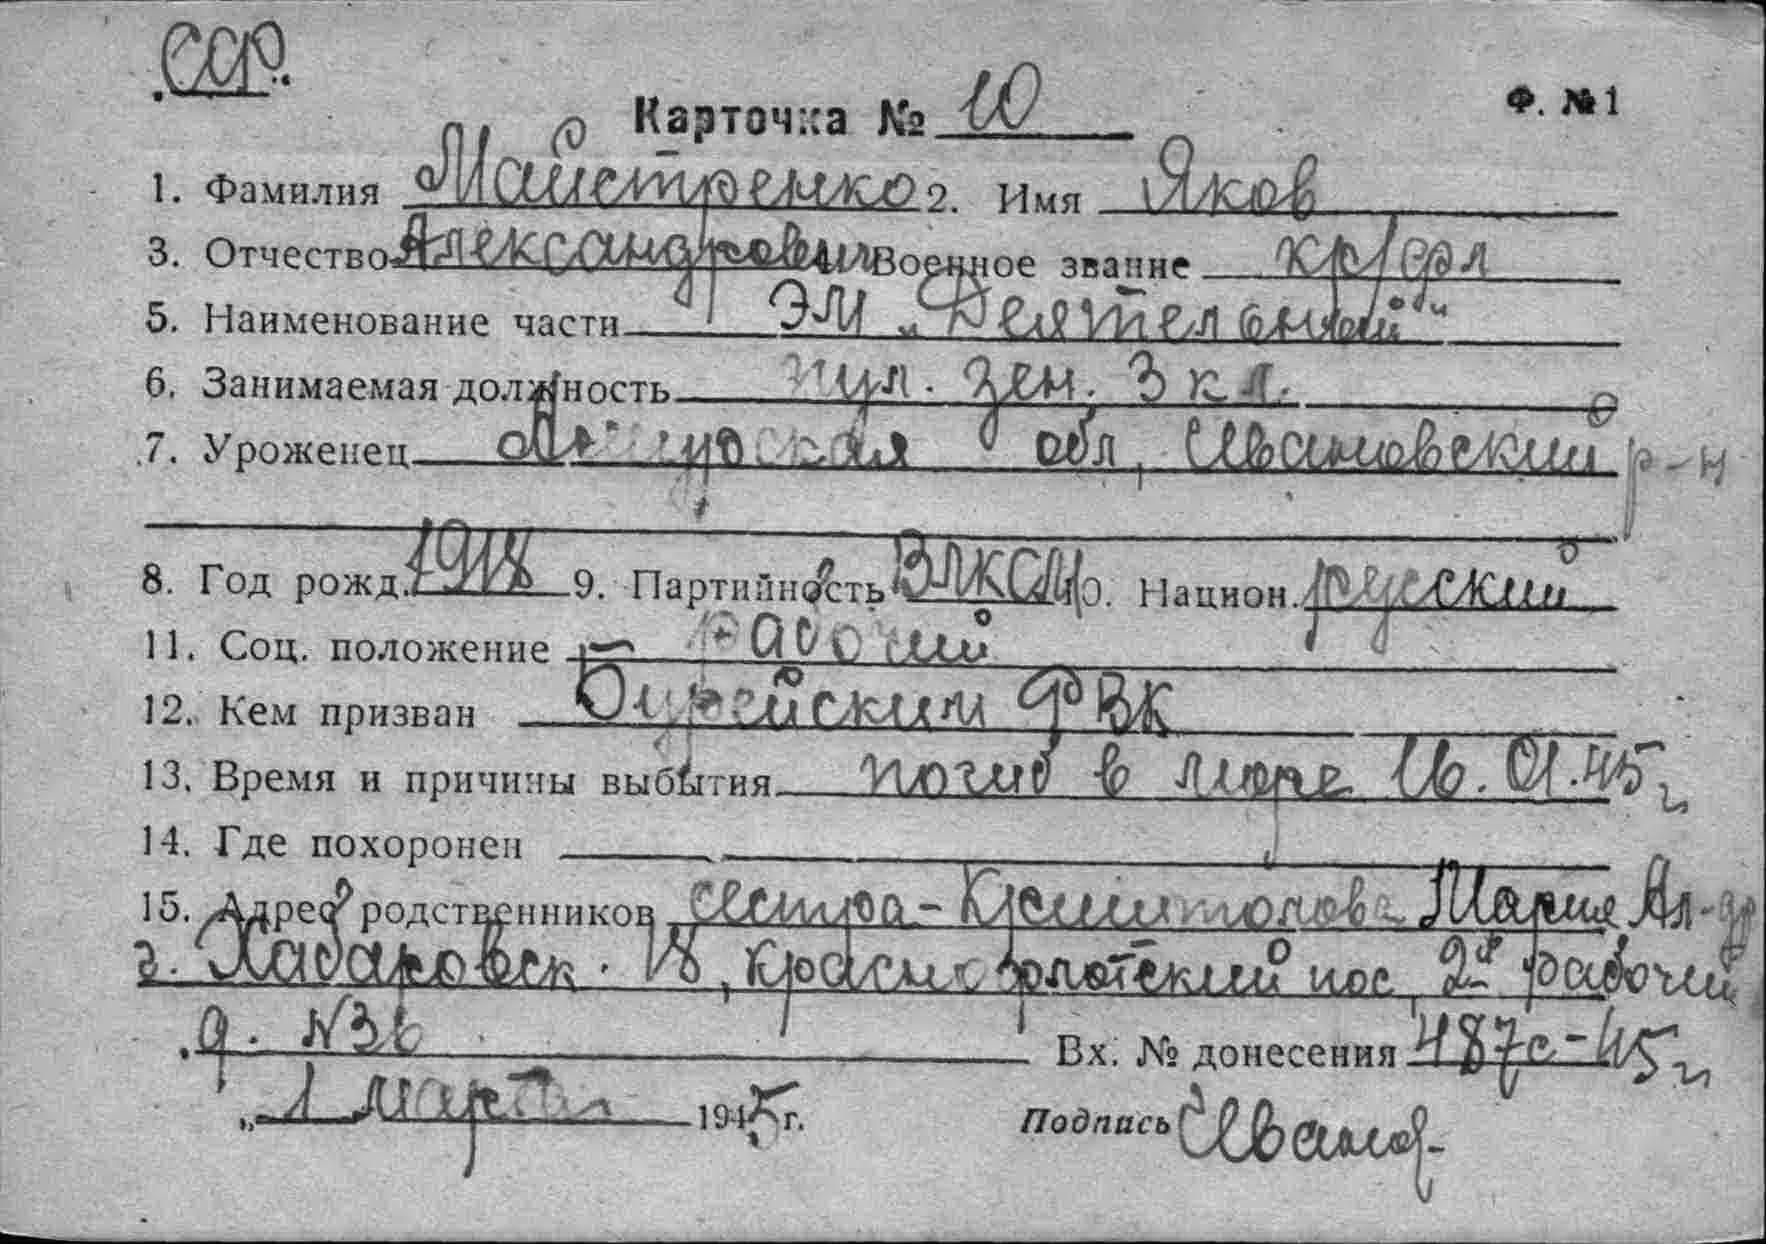 ССР.
Карточка № 10 Ф. №1
1. Фамилия Майстренко 2. Имя Яков
3. Отчество Александрович Военное звание кр/фл
5. Наименование части ЭМ „Деятельный"
6. Занимаемая должность пул. зен. 3 кл.
7. Уроженец Амурская обл, Ивановский р-н
8. Год рожд. 1918 9. Партийность ВЛКСМ 10. Национ. русский
11. Соц. положение рабочий
12. Кем призван Бурейским РВК
13. Время и причины выбытия погиб в море 16.01.45г
14. Где похоронен
15. Адрес родственников сестра - Мария Ал-др
г. Хабаровск. 18, пос, 2й рабочий
д. №36 Вх. № донесения 487с-45г
„1 марта 1945г. Подпись Иванов